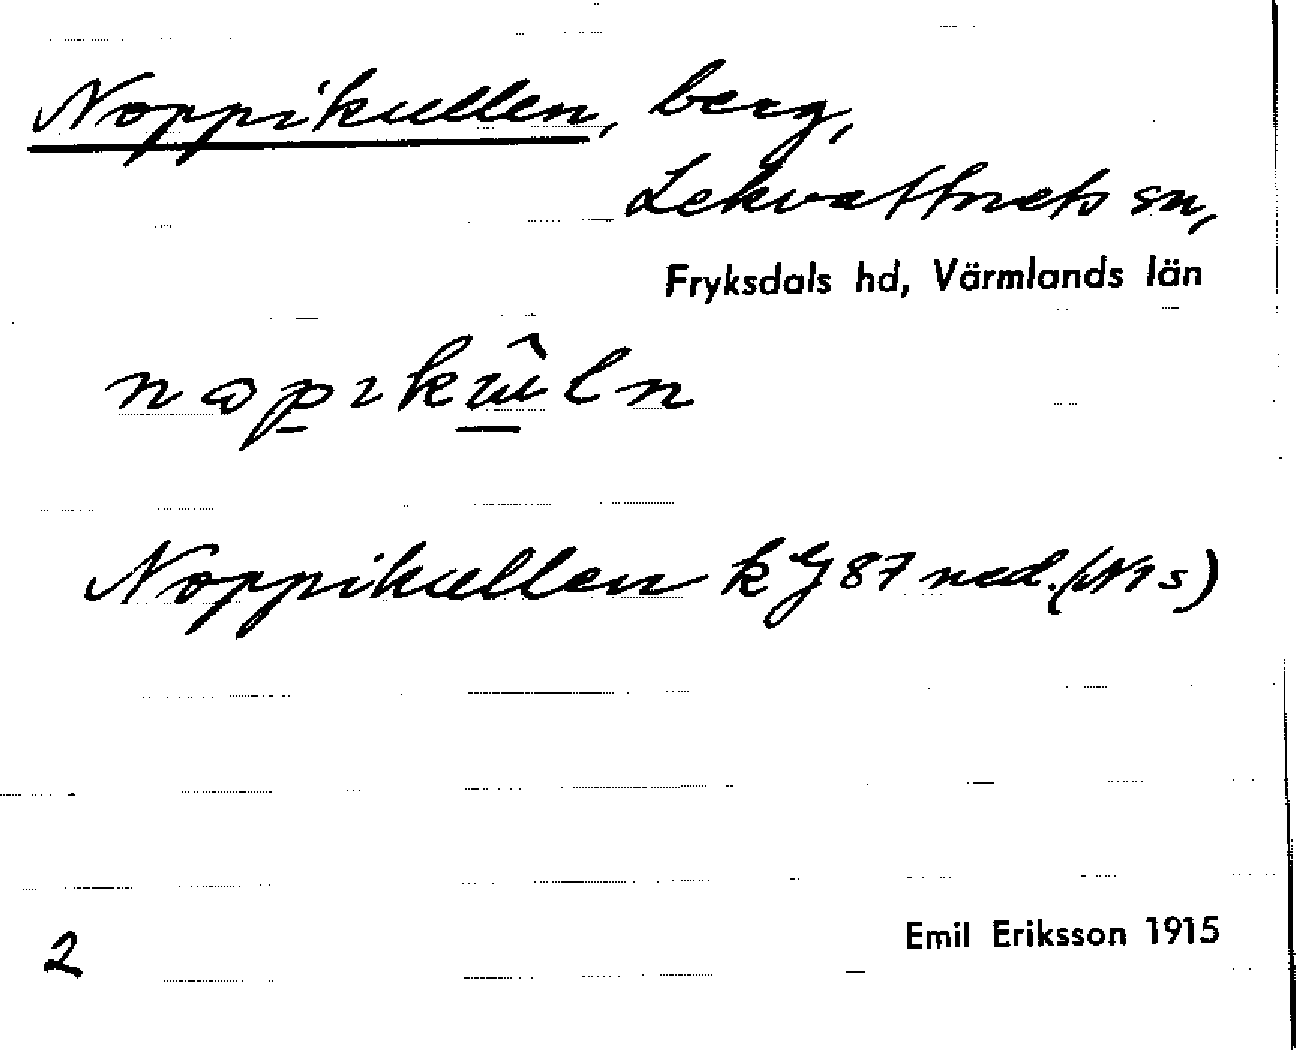 Noppikullen, berg,
Lekvattnets sn,
Fryksdals hd, Värmlands län
Noppikullen k
87 ned.
2
Emil Eriksson 1915